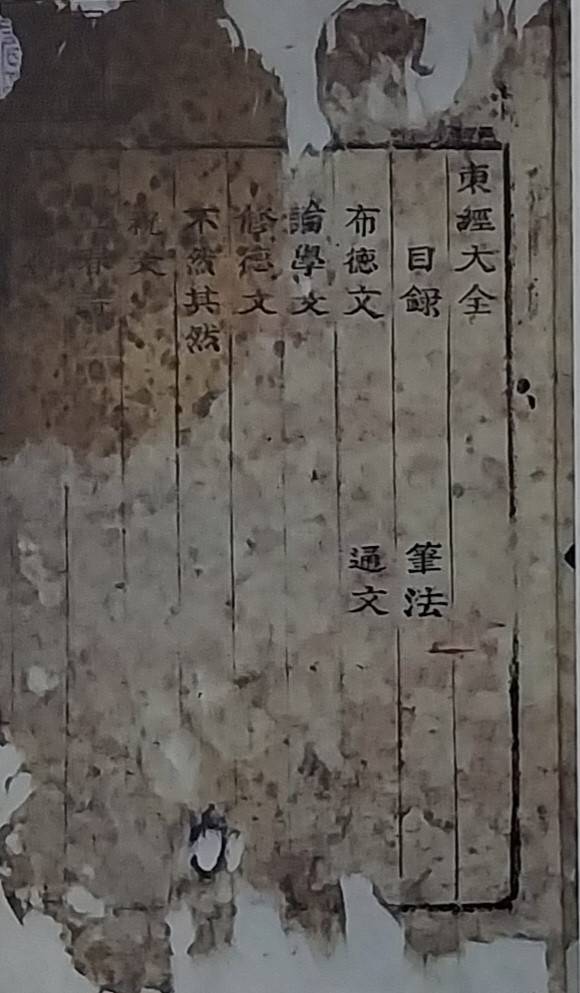 東經大全
目録
筆法
布德文
通文
論學文
修德文
不然其然
祝文